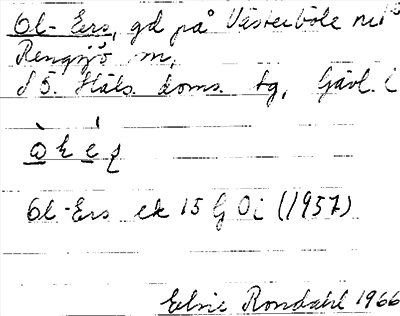 Ol-Ers, gd på Västerböle nr 15
Rengsjö sn,
S ö. Häls. doms. tg, Gävl. l
Ol-Ers ek 15 G Oi (1957)
Elsie Rondahl 1966